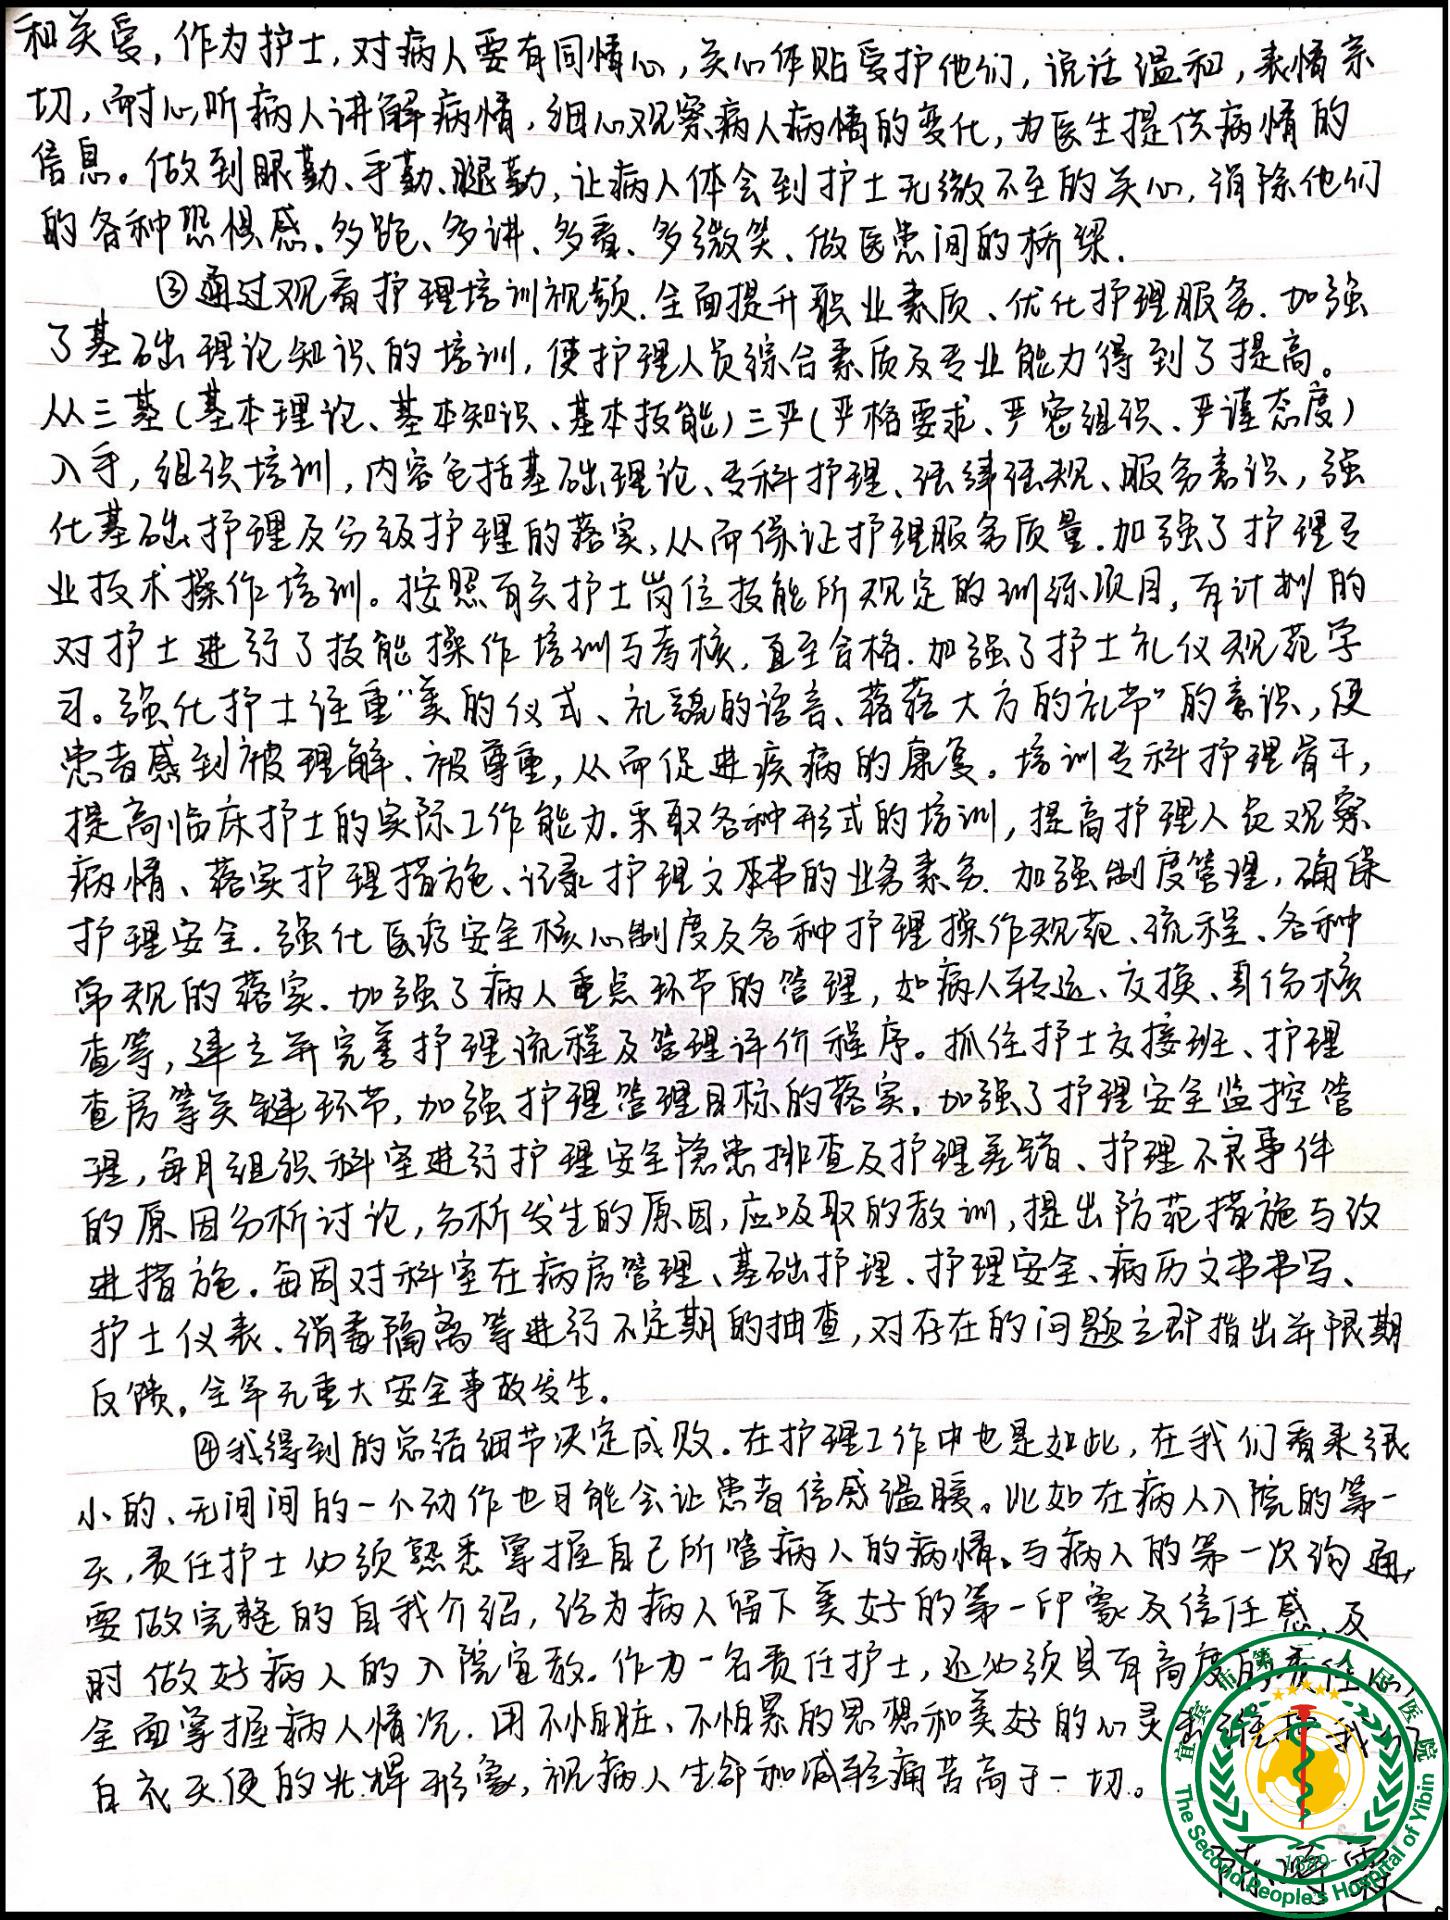 和关爱，作为护士，对病人要有同情心，关心体贴爱护他们，说话温和，表情亲
切，耐心听病人讲解病情，细心观察病人病情的变化，为医生提供病情的
信息。做到眼勤、手勤、腿勤，让病人体会到护士无微不至的关心，消除他们
的各种恐惧感。多跑、多讲、多看、多微笑、做医患间的桥梁.
③通过观看护理培训视频.全面提升职业素质、优化护理服务.加强
了基础理论知识的培训，使护理人员综合素质及专业能力得到了提高。
从三基(基本理论、基本知识、基本技能)三严(严格要求、严密组织、严谨态度)
入手，组织培训，内容包括基础理论、专科护理、法律法规、服务意识，强
化基础护理及分级护理的落实,从而保证护理服务质量.加强了护理专
业技术操作培训。按照有关护士岗位技能所规定的训练项目，有计划的
对护士进行了技能操作培训与考核,直至合格.加强了护士礼仪规范学
习。强化护士注重“美的仪式、礼貌的语言、落落大方的礼节”的意识，使
患者感到被理解、被尊重，从而促进疾病的康复。培训专科护理骨干，
提高临床护士的实际工作能力.采取各种形式的培训，提高护理人员观察
病情、落实护理措施、记录护理文书的业务素务.加强制度管理，确保
护理安全.强化医疗安全核心制度及各种护理操作规范、流程、各种
常规的落实.加强了病人重点环节的管理，如病人转运、交换、身份核
查等，建立并完善护理流程及管理评价程序。抓住护士交接班、护理
查房等关键环节，加强护理管理目标的落实。加强了护理安全监控管
理，每月组织科室进行护理安全隐患排查及护理差错、护理不良事件
的原因分析讨论，分析发生的原因，应吸取的教训，提出防范措施与改
进措施.每周对科室在病房管理、基础护理、护理安全、病历文书书写、
护士仪表、消毒隔离等进行不定期的抽查，对存在的问题立即指出并限期
反馈。全年无重大安全事故发生。
④我得到的总结细节决定成败.在护理工作中也是如此，在我们看来很
小的、无间间的一个动作也可能会让患者倍感温暖。比如在病人入院的第一
天，责任护士必须熟悉掌握自己所管病人的病情。与病人的第一次沟通，
要做完整的自我介绍，给为病人留下美好的第一印象及信任感、及
时做好病人的入院宣教.作为一名责任护士，还必须具有高度的责任心，
全面掌握病人情况.用不怕脏、不怕累的思想和美好的心灵来维护我们
白衣天使的光辉形象，视病人生命和减轻痛苦高于一切。
宜宾市第二人民医院
The Second People's Hospital of Yibin
1889